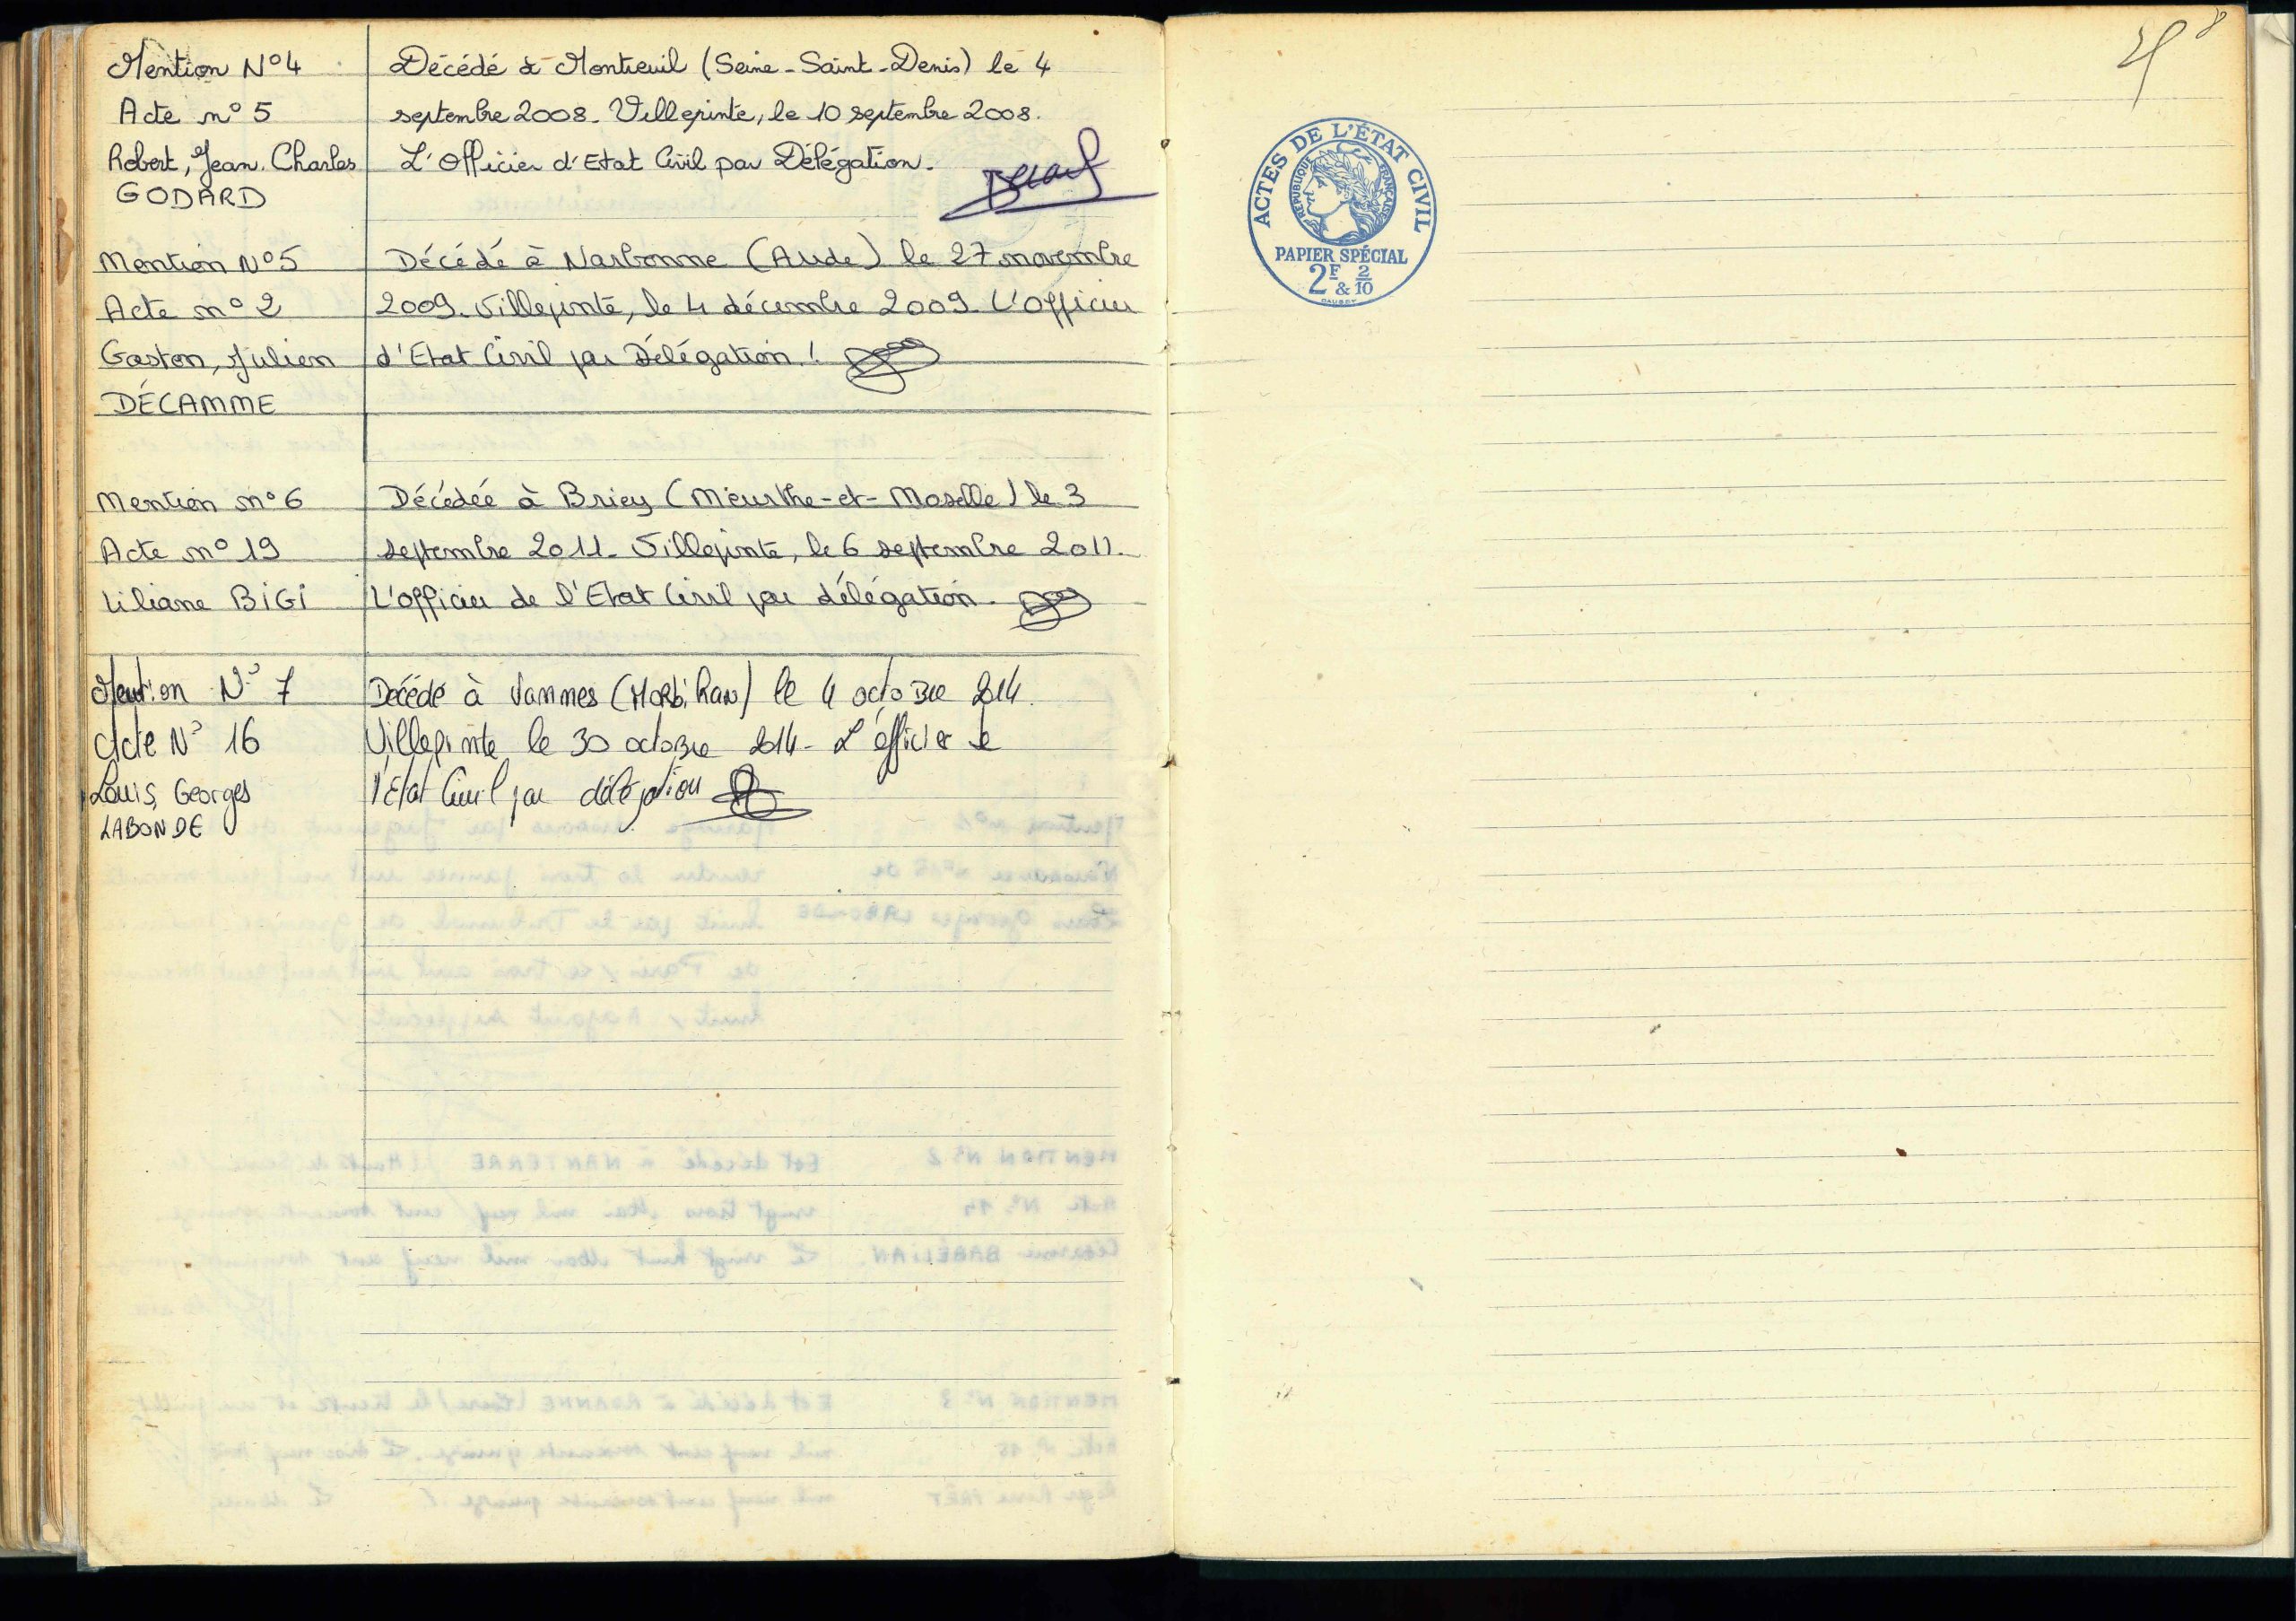 Mention N°4
Acte n° 5
Robert, Jean, Charles
GODARD
Décédé à Montreuil (Seine-Saint-Denis) le 4
septembre 2008. Villepinte, le 10 septembre 2008.
L'Officier d'Etat Civil par Délégation.
Mention N°5
Acte n° 2
Gaston, Julien
DÉCAMME
Décédé à Narbonne (Aude) le 27 novembre
2009. Villepinte, le 4 décembre 2009. L'officier
d'Etat Civil par Délégation.
Mention n°6
Acte n° 19
Liliane BiGi
Décédée à Briey (Meurthe-et-Moselle) le 3
septembre 2011. Villepinte, le 6 septembre 2011.
L'officier de l'Etat Civil par délégation.
Mention N° 7
Acte N° 16
Louis, Georges
LABONDE
Décédé à Vannes (Morbihan) le 4 octobre 2014.
Villepinte le 30 octobre 2014. L'officier de
l'Etat Civil par délégation
ACTES DE L'ÉTAT CIVIL
RÉPUBLIQUE FRANÇAISE
PAPIER SPÉCIAL
2F & 2/10